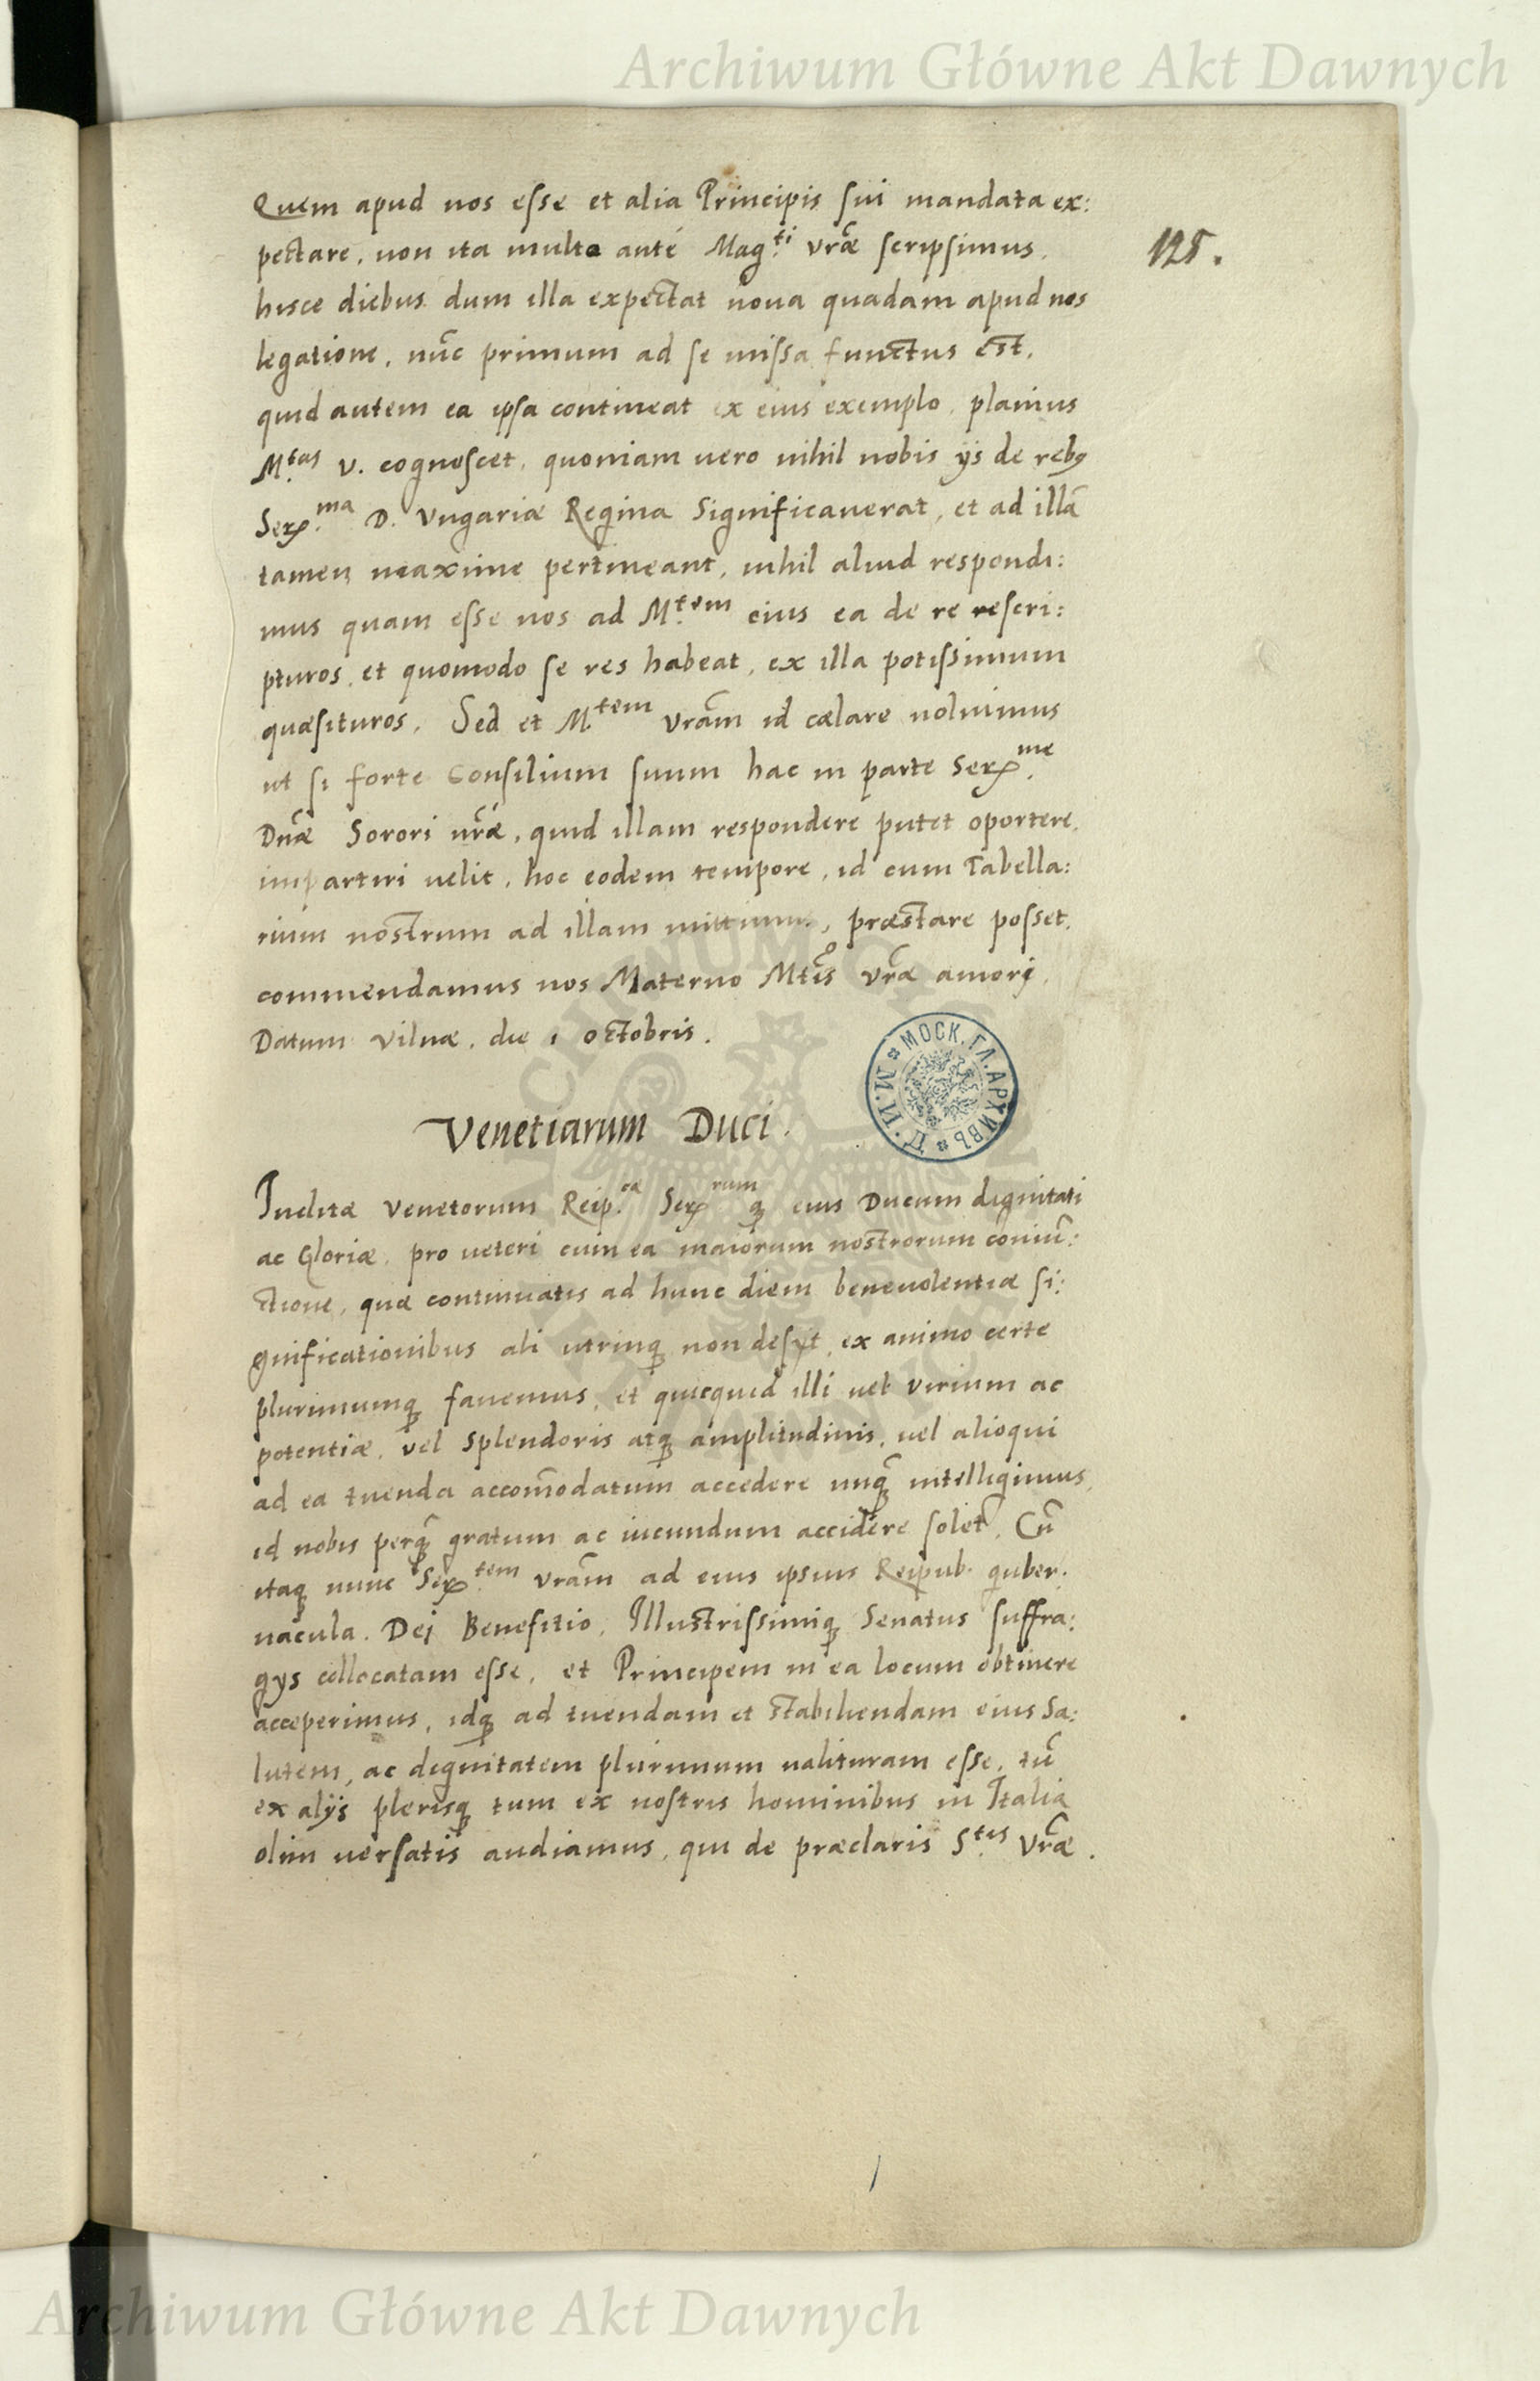 Archiwum Główne Akt Dawnych
Quem apud nos esse et alia Principis sui mandata ex:
pectare, non ita multo anté Mag.ti vrãe scripsimus.
125.
hisce diebus dum illa expectat noua quadam apud nos
legatione, nũc primum ad se missa functus est,
quid autem ea ipsa contineat ex eius exemplo, planius
M.tas v. cognoscet, quoniam uero nihil nobis ijs de rebq
Ser.ma D. Vngariæ Regina Significauerat, et ad illã
tamen maxime pertineant, nihil aliud respondi:
mus quam esse nos ad M.tem eius ea de re rescri:
pturos, et quomodo se res habeat, ex illa potissimum
quæsituros. Sed et M.tem vrãm id cælare noluimus
ut si forte Consilium suum hac in parte Ser.me
Dnãe Sorori vrãe, quid illam respondere putet oportere,
impartiri uelit, hoc eodem tempore, id cum Tabella:
rium nostrum ad illam mittimus, præstare posset.
commendamus nos Materno Mtis vrãe amori.
Datum Vilnæ, die 1 octobris.
МОСК. ГЛ. АРХИВЪ М. И. Д.
Venetiarum Duci.
Inclitæ Venetorum Reip.cæ Ser.rum q; eius Ducum dignitati
ac Gloriæ, pro ueteri cum ea maiorum nostrorum coniũ:
ctione, quæ continuatis ad hunc diem beneuolentiæ si:
gnificationibus ali utrinq; non desijt, ex animo certe
plurimumq; fauemus, et quicquid illi uel virium ac
potentiæ, vel Splendoris atq; amplitudinis, uel alioqui
ad ea tuenda accom̃odatum accedere unq̃ intelligimus,
id nobis perq̃ gratum ac iucundum accidere solet. Cũ
itaq; nunc Ser.tem vrãm ad eius ipsius Reipub. guber:
nacula. Dei Benefitio, Illustrissimiq; Senatus suffra:
gijs collocatam esse, et Principem in ea locum obtinere
acceperimus, idq; ad tuendam et stabiliendam eius Sa:
lutem, ac dignitatem plurimum ualituram esse, tũ
ex alijs plerisq; tum ex nostris hominibus in Italia
olim uersatis audiamus, qui de præclaris S.tis vrãe.
Archiwum Główne Akt Dawnych